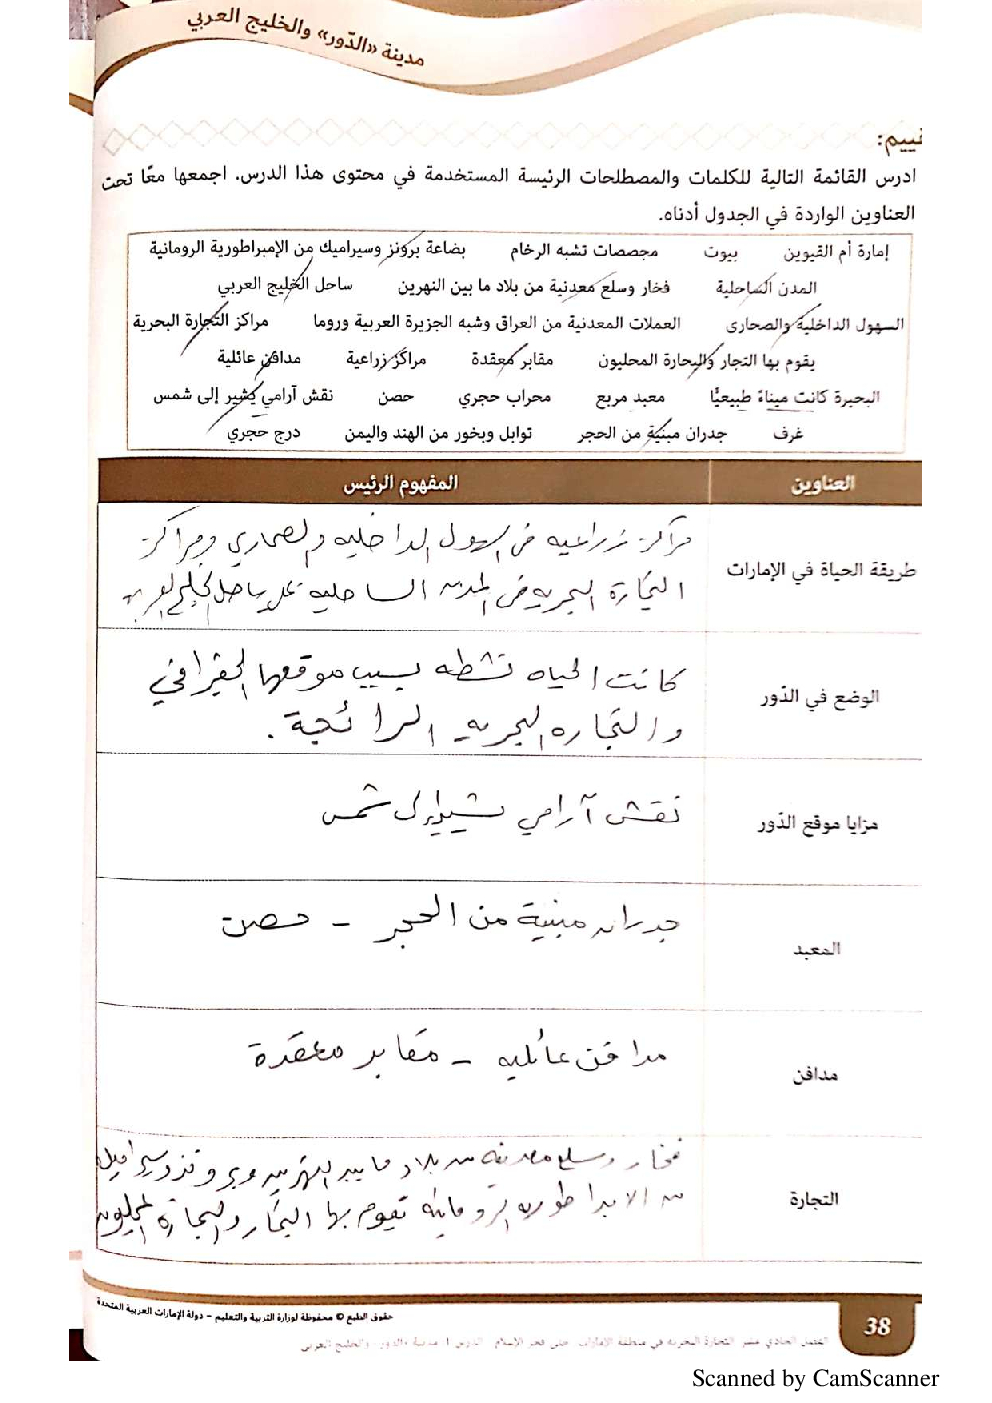 مدينة «الدّور» والخليج العربي
قييم:
ادرس القائمة التالية للكلمات والمصطلحات الرئيسة المستخدمة في محتوى هذا الدرس. اجمعها معًا تحت
العناوين الواردة في الجدول أدناه.
إمارة أم القيوين بيوت مجصصات تشبه الرخام بضاعة برونز وسيراميك من الإمبراطورية الرومانية
المدن الساحلية فخار وسلع معدنية من بلاد ما بين النهرين ساحل الخليج العربي
السهول الداخلية والصحارى العملات المعدنية من العراق وشبه الجزيرة العربية وروما مراكز التجارة البحرية
يقوم بها التجار والبحارة المحليون مقابر معقدة مراكز زراعية مدافن عائلية
البحيرة كانت ميناءً طبيعيًّا معبد مربع محراب حجري حصن نقش آرامي يشير إلى شمس
غرف جدران مبنية من الحجر توابل وبخور من الهند واليمن درج حجري
العناوين المفهوم الرئيس
طريقة الحياة في الإمارات
مراكز زراعيه في السهول الداخليه والصحاري ومراكز
التجارة البحريه في المدن الساحليه على ساحل الخليج العربي
الوضع في الدّور
كانت الحياه نشطه بسبب موقعها الجغرافي
والتجاره البحريه الرائجة.
مزايا موقع الدّور
نقش آرامي يشير إلى شمس
المعبد
جدران مبنية من الحجر - حصن
مدافن
مدافن عائليه - مقابر معقدة
التجارة
فخار وسلع معدنيه من بلاد ما بين النهرين وبرونز وسيراميك
من الامبراطوريه الرومانيه تقوم بها التجار والبحارة المحليون
حقوق الطبع © محفوظة لوزارة التربية والتعليم - دولة الإمارات العربية المتحدة
38
Scanned by CamScanner